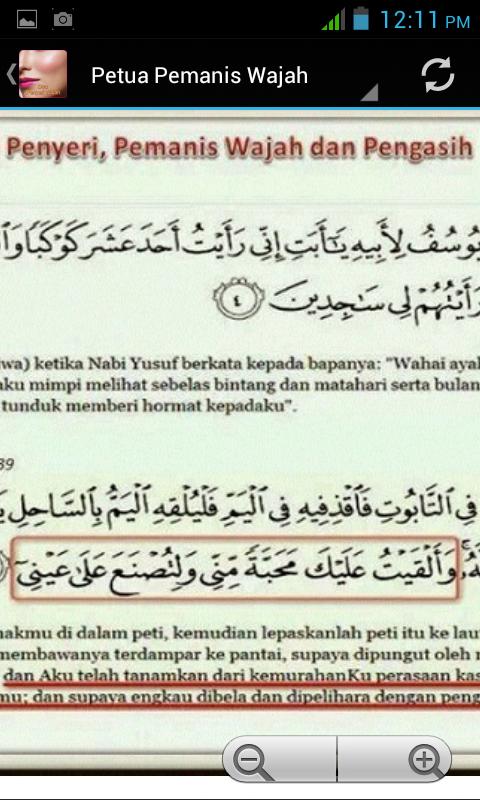 12:11 PM
Petua Pemanis Wajah
Penyeri, Pemanis Wajah dan Pengasih
يُوسُفُ لِأَبِيهِ يَٰٓأَبَتِ إِنِّى رَأَيْتُ أَحَدَ عَشَرَ كَوْكَبًا
رَأَيْتُهُمْ لِى سَٰجِدِينَ ٤
wa) ketika Nabi Yusuf berkata kepada bapanya: "Wahai aya
aku mimpi melihat sebelas bintang dan matahari serta bulan
tunduk memberi hormat kepadaku".
39
فِى ٱلتَّابُوتِ فَٱقْذِفِيهِ فِى ٱلْيَمِّ فَلْيُلْقِهِ ٱلْيَمُّ بِٱلسَّاحِلِ
وَأَلْقَيْتُ عَلَيْكَ مَحَبَّةً مِّنِّى وَلِتُصْنَعَ عَلَىٰ عَيْنِىٓ
nakmu di dalam peti, kemudian lepaskanlah peti itu ke lau
membawanya terdampar ke pantai, supaya dipungut oleh
dan Aku telah tanamkan dari kemurahanKu perasaan kas
mu; dan supaya engkau dibela dan dipelihara dengan peng